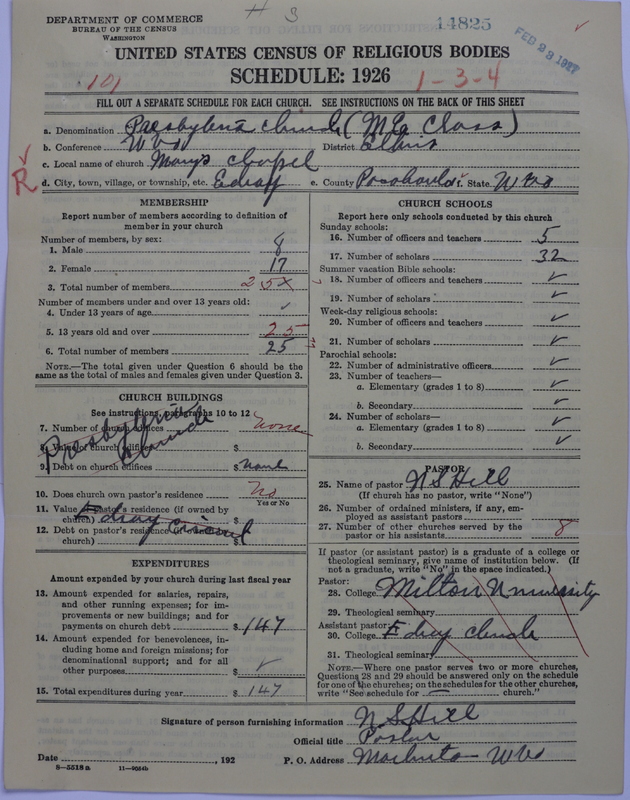 # 3
DEPARTMENT OF COMMERCE
BUREAU OF THE CENSUS
WASHINGTON
14825
FEB 23 1927
UNITED STATES CENSUS OF RELIGIOUS BODIES
SCHEDULE: 1926
101
1-3-4
FILL OUT A SEPARATE SCHEDULE FOR EACH CHURCH. SEE INSTRUCTIONS ON THE BACK OF THIS SHEET
a. Denomination Church (
b. Conference W Va District Elkins
c. Local name of church Marys Chapel
R
d. City, town, village, or township, etc. Edray e. County f. State W Va
MEMBERSHIP
Report number of members according to definition of
member in your church
Number of members, by sex:
1. Male 8
2. Female 17
3. Total number of members 25x
Number of members under and over 13 years old:
4. Under 13 years of age ✓
5. 13 years old and over 25
6. Total number of members 25
NOTE.—The total given under Question 6 should be the
same as the total of males and females given under Question 3.
CHURCH BUILDINGS
See instructions, paragraphs 10 to 12
7. Number of church edifices none
8. Value of church edifices $
Presbyterian
Church
9. Debt on church edifices $ none
10. Does church own pastor's residence No
Yes or No
11. Value of pastor's residence (if owned by
church) $
Edray circuit
12. Debt on pastor's residence (if owned by
church) $
EXPENDITURES
Amount expended by church during last fiscal year
13. Amount expended for salaries, repairs,
and other running expenses; for im-
provements or new buildings; and for
payments on church debt $ 147
14. Amount expended for benevolences, in-
cluding home and foreign missions; for
denominational support; and for all
other purposes $ ✓
15. Total expenditures during year $ 147
CHURCH SCHOOLS
Report here only schools conducted by this church
Sunday schools:
16. Number of officers and teachers 5
17. Number of scholars 32
Summer vacation Bible schools:
18. Number of officers and teachers ✓
19. Number of scholars ✓
Week-day religious schools:
20. Number of officers and teachers ✓
21. Number of scholars ✓
Parochial schools:
22. Number of administrative officers ✓
23. Number of teachers—
a. Elementary (grades 1 to 8) ✓
b. Secondary ✓
24. Number of scholars—
a. Elementary (grades 1 to 8) ✓
b. Secondary ✓
PASTOR
25. Name of pastor N S Hill
(If church has no pastor, write "None")
26. Number of ordained ministers, if any, em-
ployed as assistant pastors
27. Number of other churches served by the
pastor or his assistants 8
If pastor (or assistant pastor) is a graduate of a college or
theological seminary, give name of institution below. (If
not a graduate, write "No" in the space indicated.)
Pastor:
28. College Milton University
29. Theological seminary
Assistant pastor:
30. College Edray church
31. Theological seminary
NOTE.—Where one pastor serves two or more churches,
Questions 28 and 29 should be answered only on the schedule
for one of the churches; on the schedules for the other churches,
write "See schedule for church."
Signature of person furnishing information N S Hill
Official title Pastor
Date , 192 P. O. Address W Va
8—5518 a 11—9064b